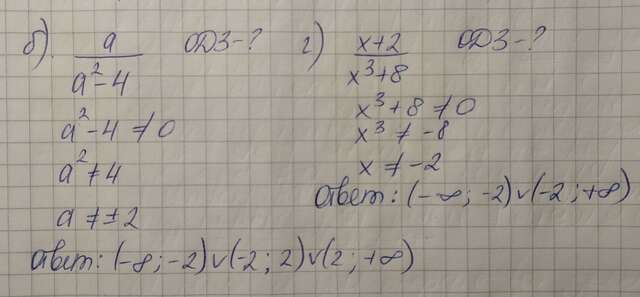 б) a/(a²-4) ОДЗ-?
a²-4≠0
a²≠4
a≠±2
ответ: (-∞; -2)∪(-2; 2)∪(2; +∞)
г) x+2/(x³+8) ОДЗ-?
x³+8≠0
x³≠-8
x≠-2
ответ: (-∞; -2)∪(-2; +∞)